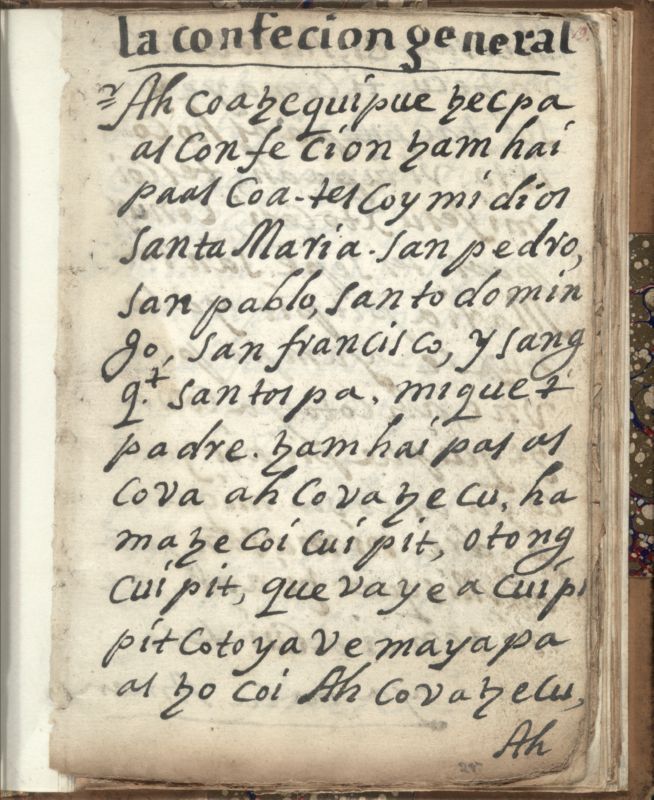 la confecion general
Ah coaꜩequipue ꜩecpa
as confecion ꜩam hai
paas Coa-tes coy mi dios
santa Maria. san pedro,
san pablo, santo domin
go, san francisco, y sang
q.t santos pa. miquet
padre. ꜩam hai pas as
cova ah covaꜩecu, ha
maꜩe coi cuipit, otong
cuipit, quevaye a cuipi
pit cotoyave mayapa
as ꜩo coi Ah covaꜩecu,
Ah